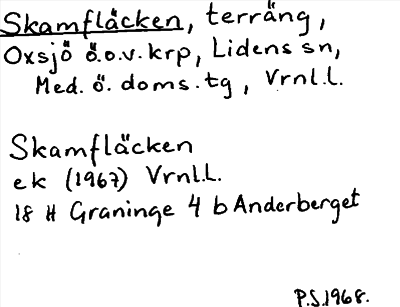 Skamfläcken, terräng,
Oxsjö ö.o.v. krp, Lidens sn,
Med. ö. doms.tg, Vrnl.L.
Skamfläcken
ek (1967) Vrnl.L.
18 H Graninge 4 b Anderberget
P.S.1968.